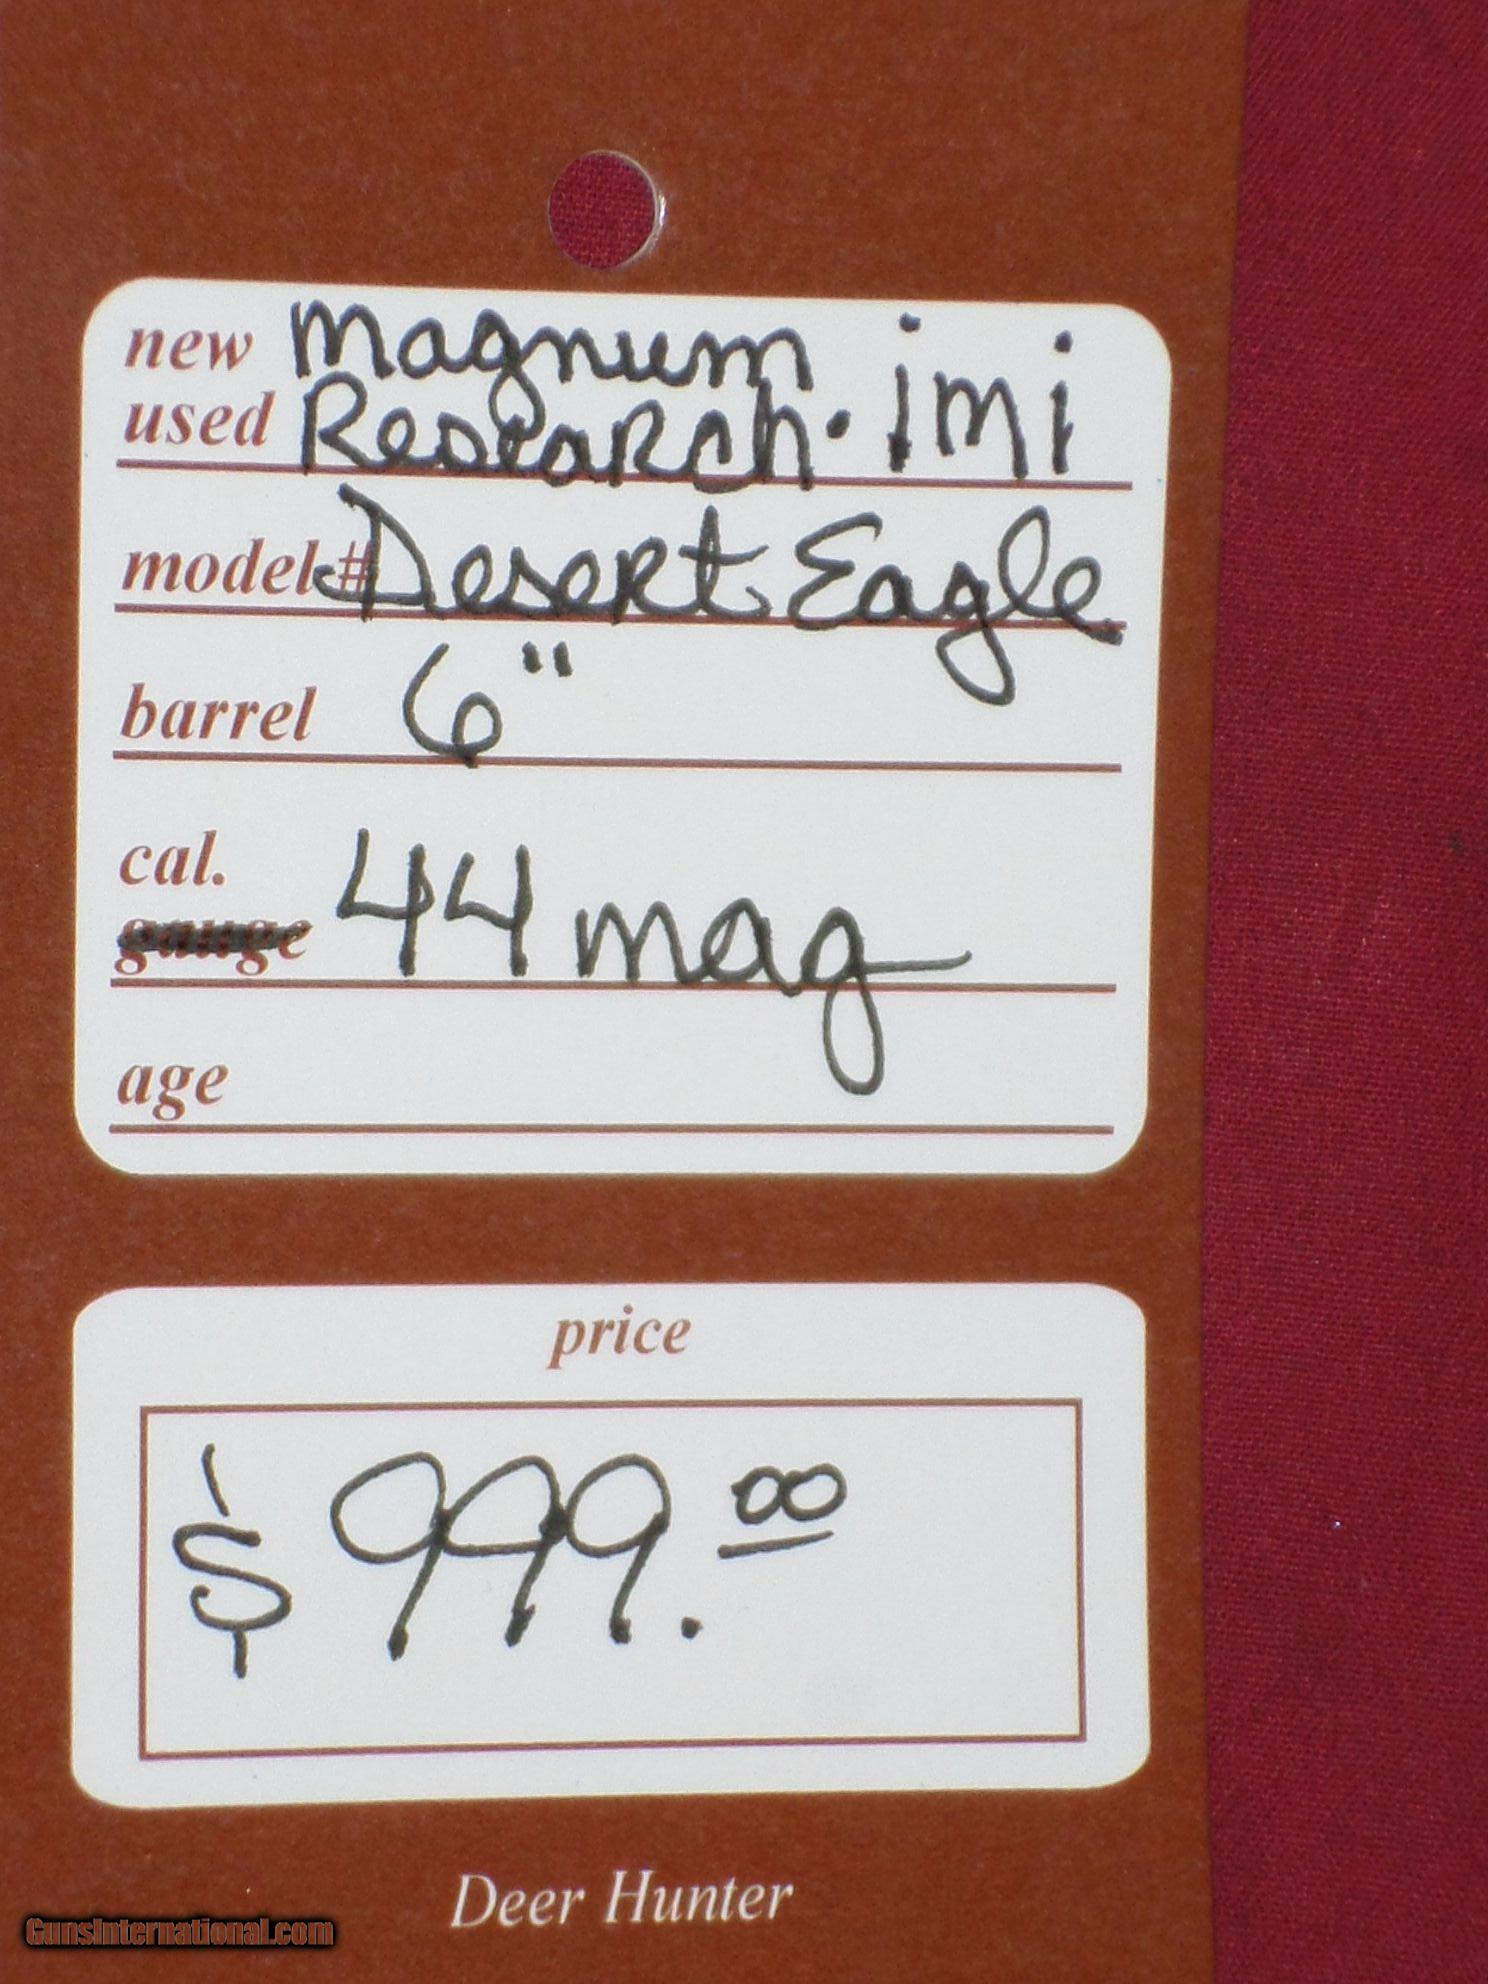 new magnum
used Research. imi
model # Desert Eagle
barrel 6"
cal. 44 mag
gauge
age
price
$ 999.00
Deer Hunter
GunsInternational.com